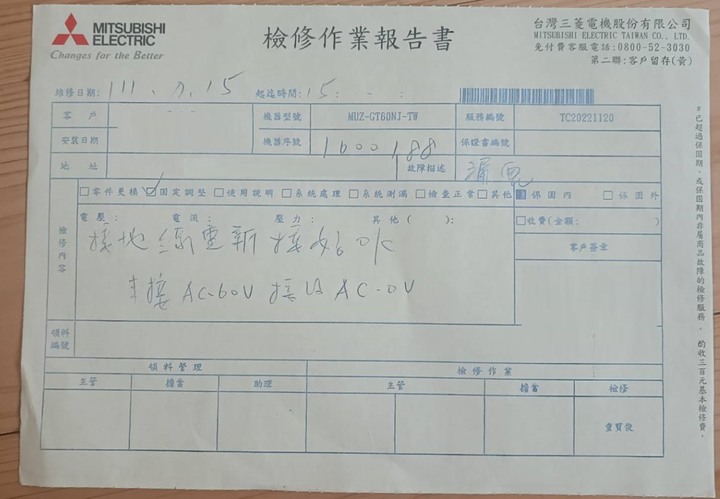 MITSUBISHI
ELECTRIC
Changes for the Better
檢修作業報告書
台灣三菱電機股份有限公司
MITSUBISHI ELECTRIC TAIWAN CO., LTD.
免付費客服電話:0800-52-3030
第二聯:客戶留存(黃)
維修日期: 111. 7.15 起迄時間: 15: - :
客戶 機器型號 MUZ-GT60NJ-TW 服務編號 TC20221120
安裝日期 機器序號 1600188 保證書編號
地址 故障描述 漏電
零件更換 固定調整 使用說明 系統處理 系統測漏 檢查正常 其他 保固內 保固外
檢修內容
電壓: 電流: 壓力: 其他( ):
收費(金額: )
接地線重新接好OK
客戶簽章
未接 AC-60V 接後 AC-0V
領料編號
領料管理 檢修作業
主管 擔當 助理 主管 擔當 檢修
已超過保固期、或保固期內非屬商品故障的檢修服務,酌收三百元基本檢修費。